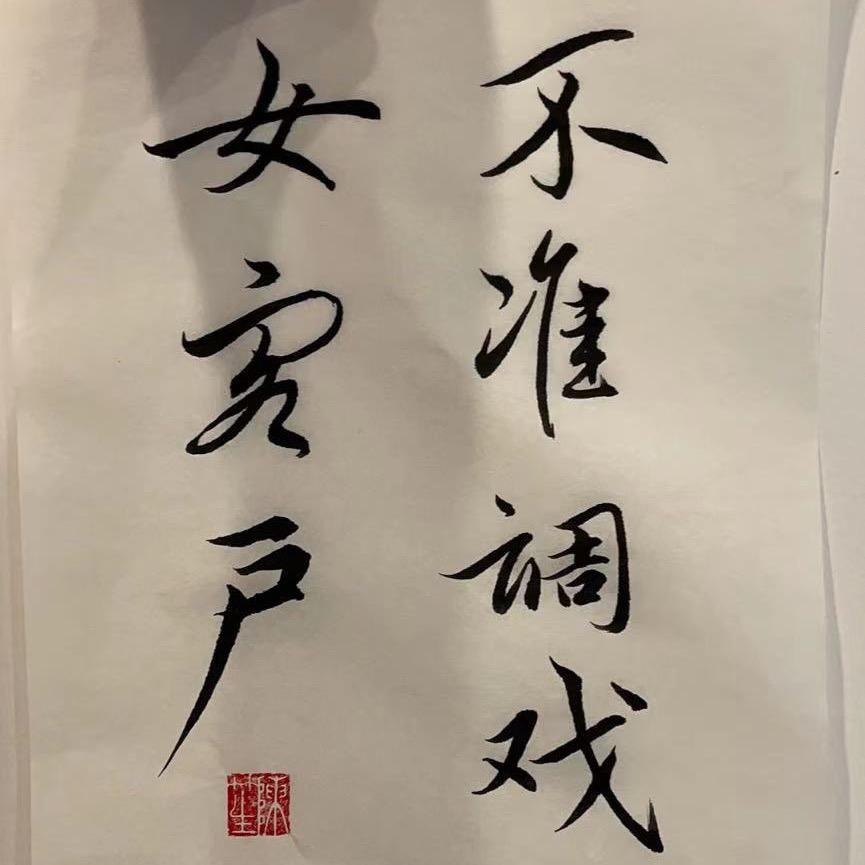 不准調戏
女客户